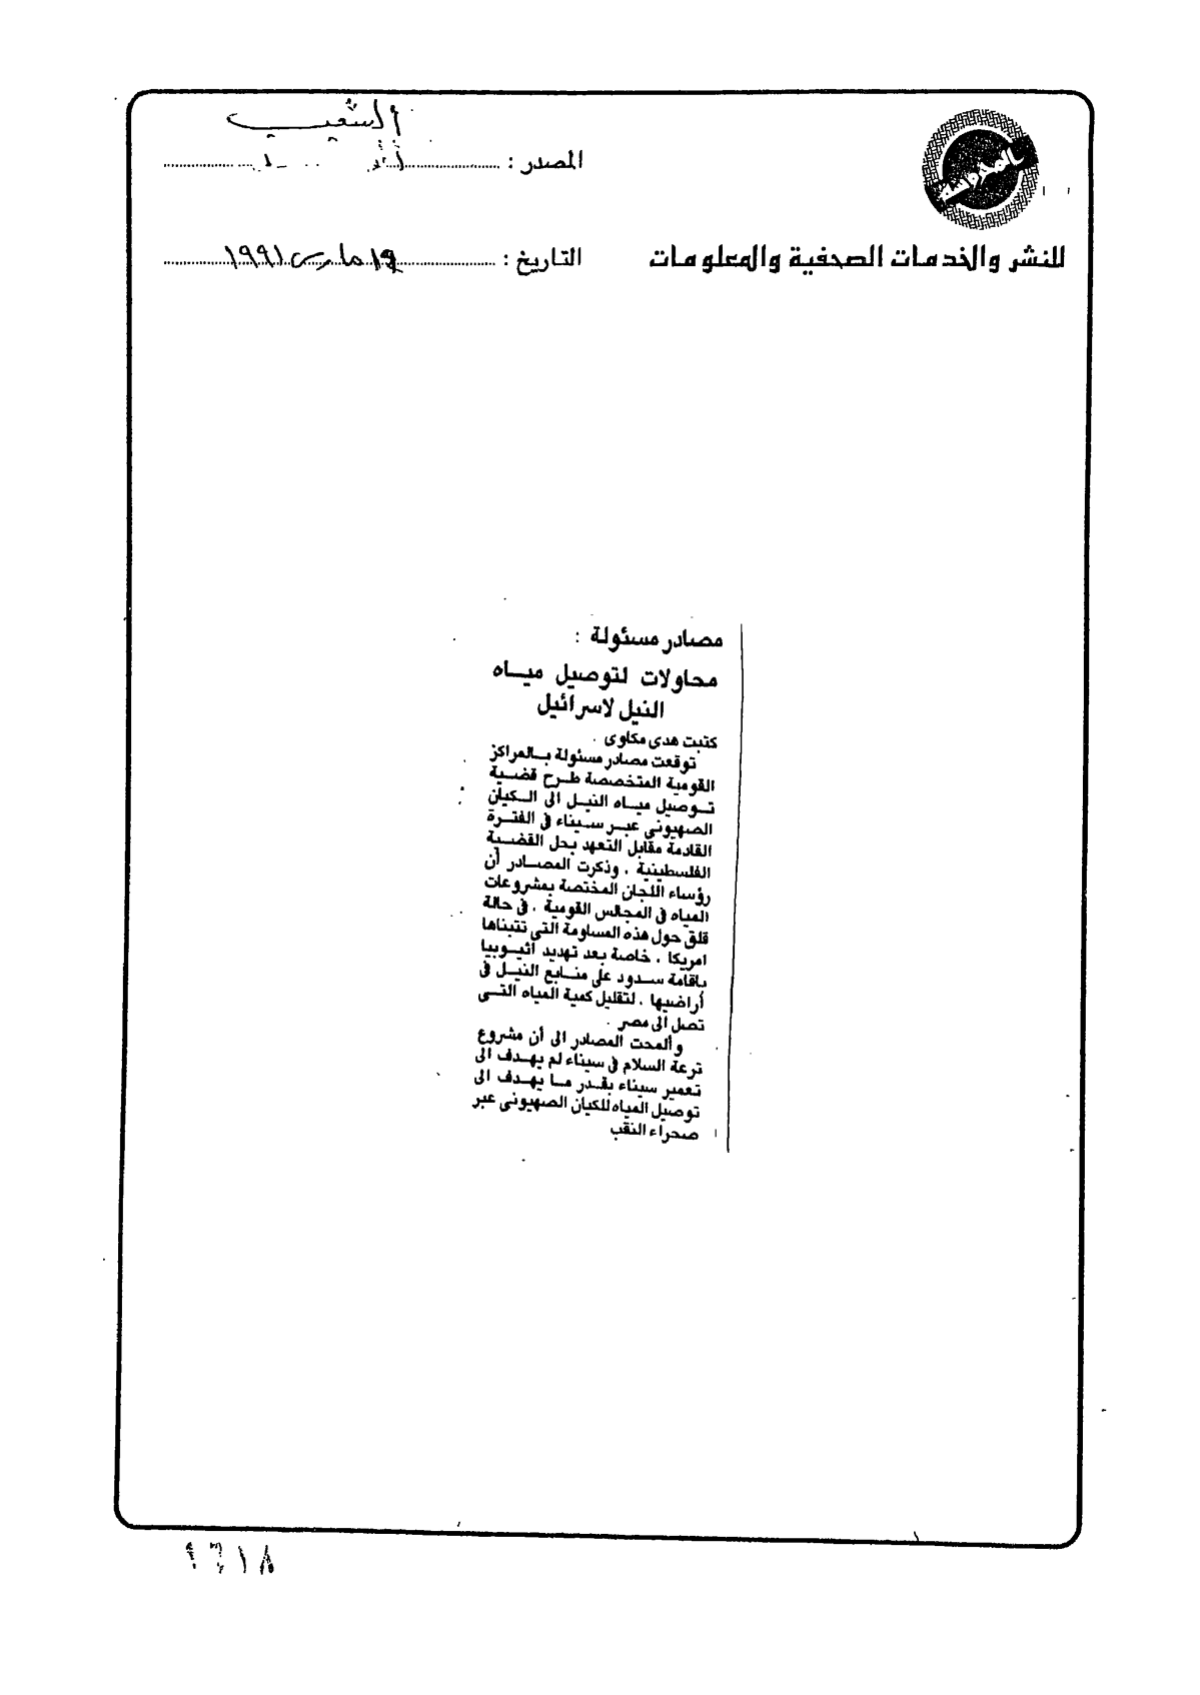 الشعب
المصدر :
للنشر والخدمات الصحفية والمعلومات
التاريخ : ١٩ مارس ١٩٩١
مصادر مسئولة :
محاولات لتوصيل ميـاه
النيل لاسرائيل
كتبت هدى مكاوى .
توقعت مصادر مسئولة بـالمراكز
القومية المتخصصة طرح قضـية
تـوصيل ميـاه النيـل الى الـكيان
الصهيونى عبـر سـيناء فى الفتـرة
القادمة مقابل التعهد بحل القضـية
الفلسطينية ، وذكرت المصـادر أن
رؤساء اللجان المختصة بمشروعات
المياه فى المجالس القومية ، فى حالة
قلق حول هذه المساومة التى تتبناها
امريكا ، خاصة بعد تهديد اثيـوبيا
باقامة سـدود على منـابع النيـل فى
أراضيها ، لتقليل كمية المياه التـى
تصل الى مصر .
وألمحت المصادر الى أن مشروع
ترعة السلام فى سيناء لم يهـدف الى
تعمير سيناء بقدر مـا يهـدف الى
توصيل المياه للكيان الصهيونى عبر
صحراء النقب